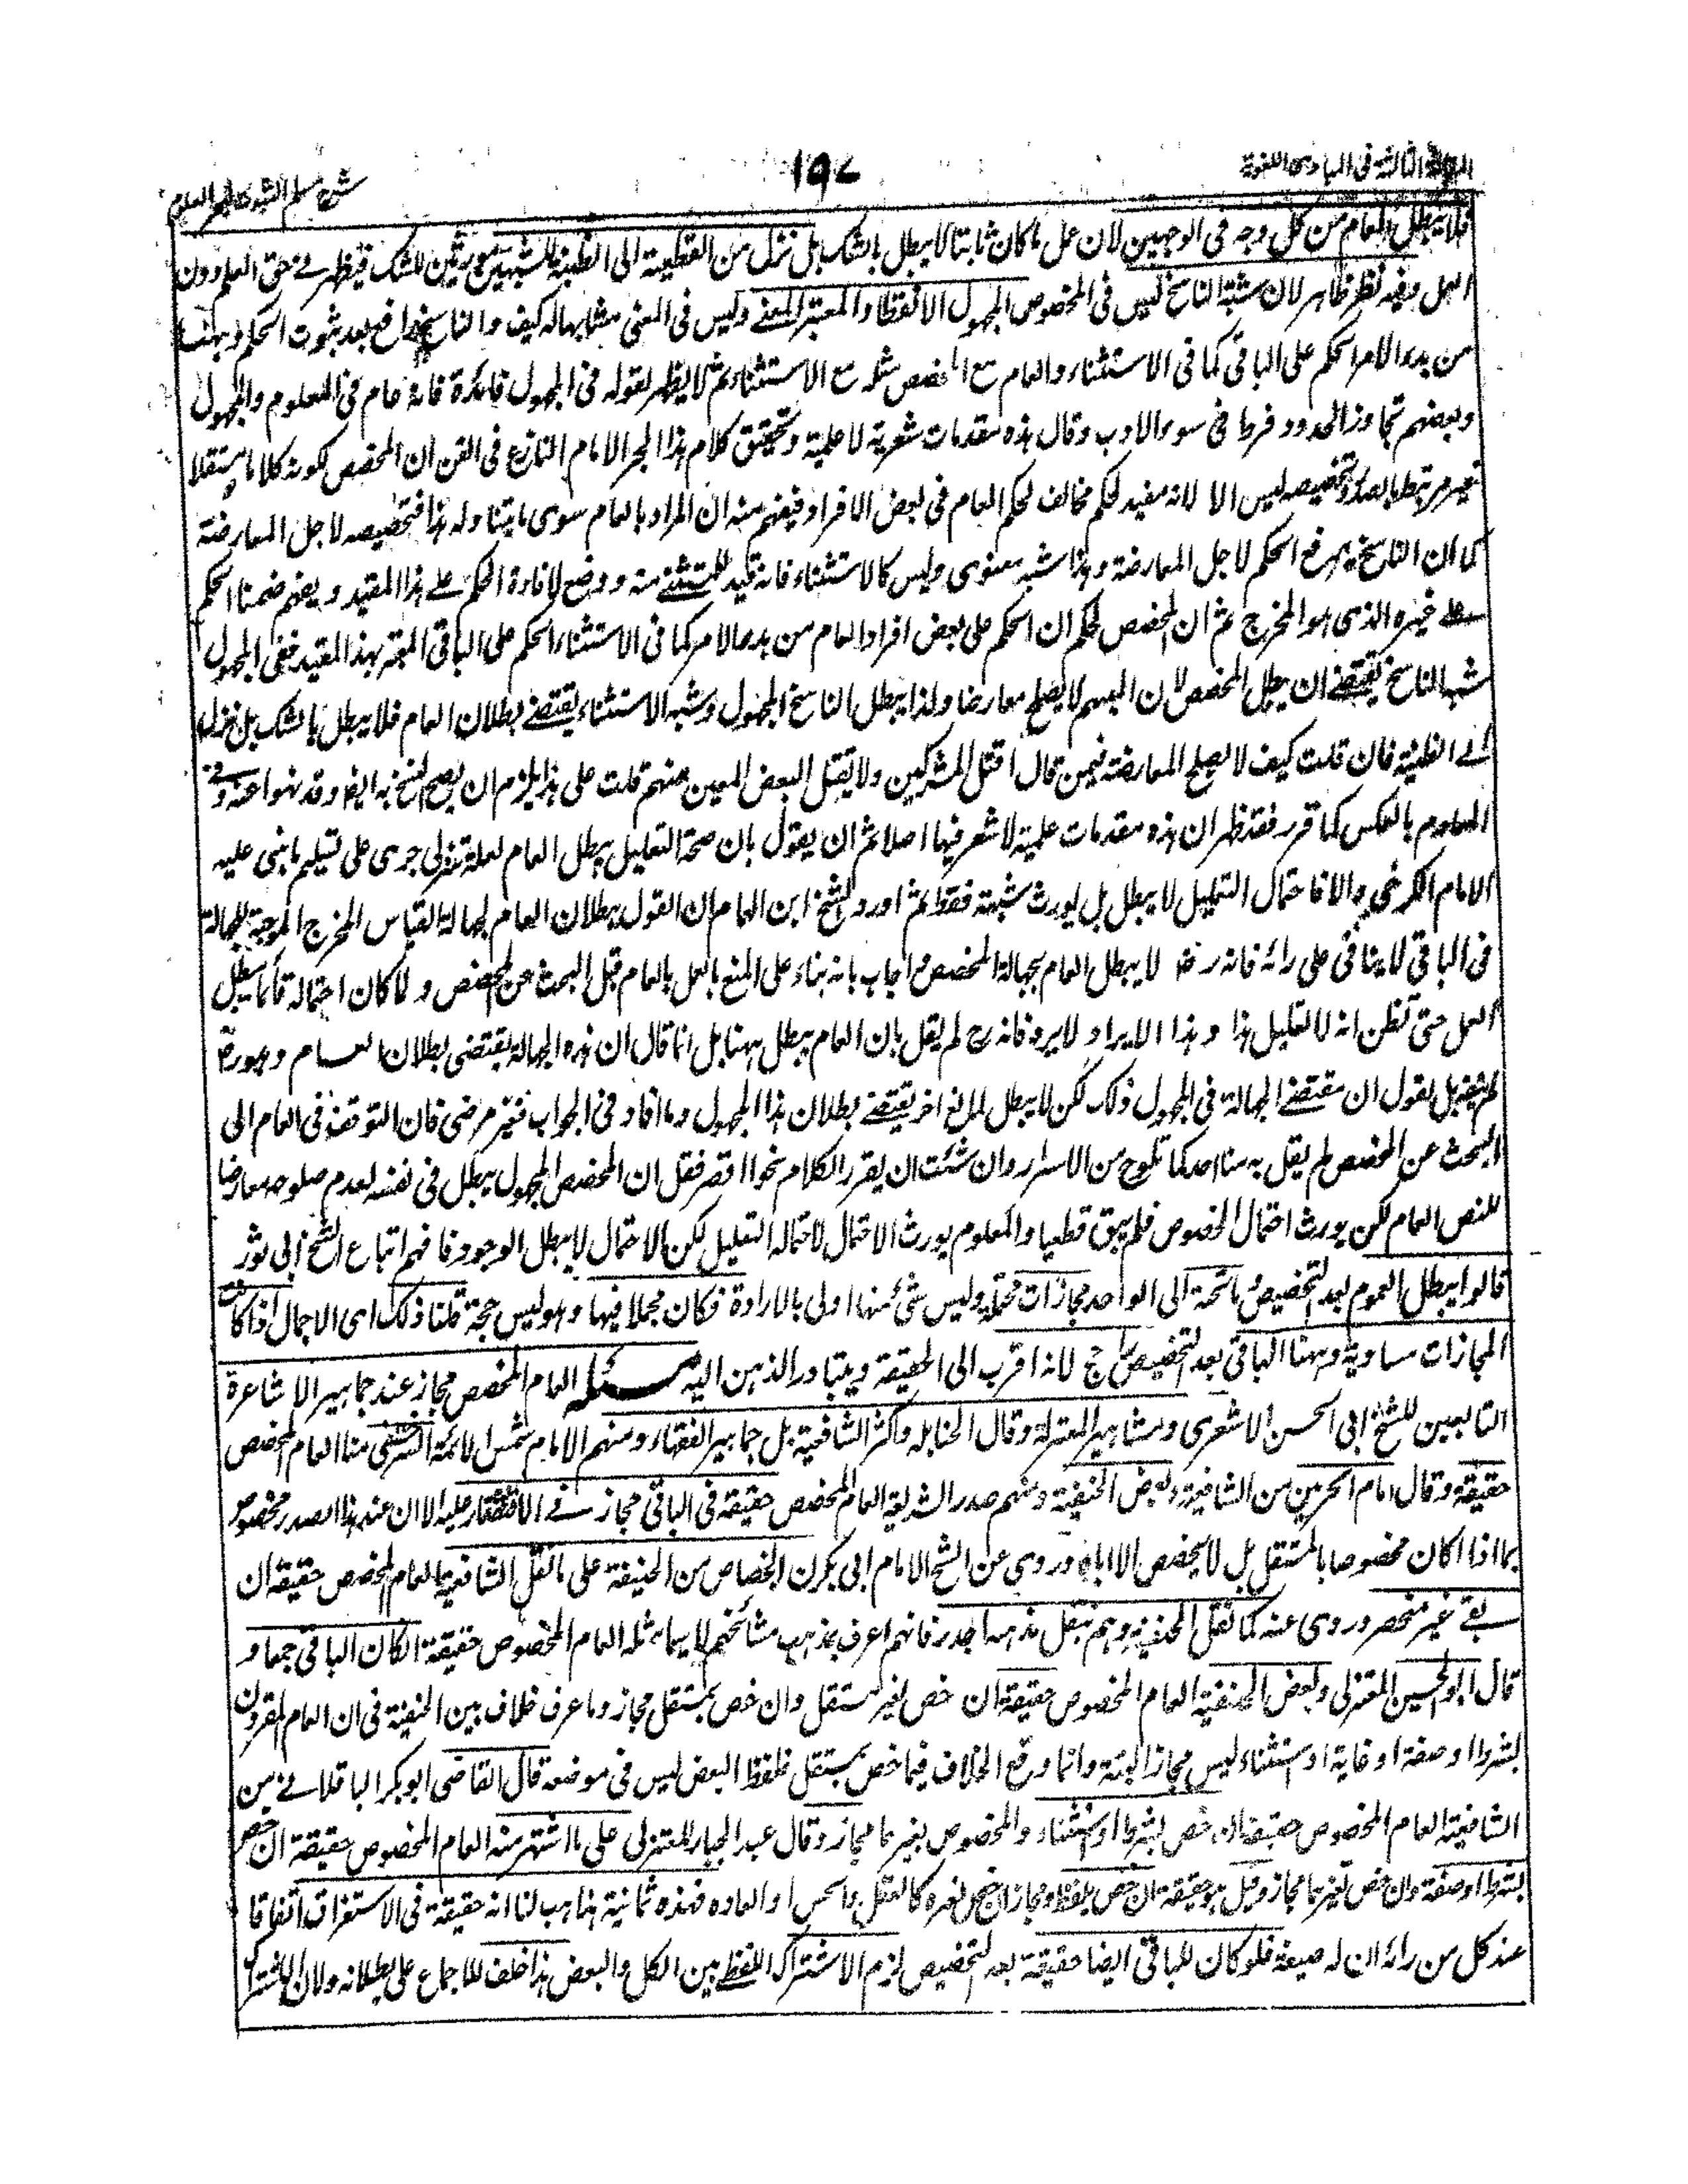 المقالة الثالثة فى المبادى اللغوية
١٩٧
شرح مسلم الثبوت لبحر العلوم
فلا يبطل العام من كل وجه فى الوجهين لان عل ما كان ثابتا لا يبطل بالشك بل نزل من القطعية الى الظنية للشبهين مورثين للشك فيظهر فى حق العلم دون
العمل وفيه نظر ظاهر لان شبه الناسخ ليس فى المخصوص المجهول الا لفظا والمعتبر المعنى وليس فى المعنى مشابها له كيف والناسخ رافع بعد ثبوت الحكم وههنا
من بدء الامر الحكم على الباقى كما فى الاستثناء والعام مع المخصص مثله مع الاستثناء ثم لا يظهر لقوله فى المجهول فائدة فانه عام فى المعلوم والمجهول
وبعضهم تجاوز الحدود فرط فى سوء الادب وقال هذه مقدمات شعرية لا علمية وتحقيق كلام هذا الحبر الامام البارع فى الفن ان المخصص لكونه كلاما مستقلا
غير مرتبط بالصدر وتخصيصه ليس الا لانه مفيد لحكم مخالف لحكم العام فى بعض الافراد فيفهم منه ان المراد بالعام سوى ما يتناوله هذا فتخصيصه لاجل المعارضة
كما ان الناسخ يرفع الحكم لاجل المعارضة وهذا شبه معنوى وليس كالاستثناء فانه قيد للمستثنى منه ووضع لافادة الحكم على هذا المقيد ويفهم ضمنا الحكم
على غيره الذى هو المخرج ثم ان المخصص لحكم ان الحكم على بعض افراد العام من بدء الامر كما فى الاستثناء الحكم على الباقى المعبر بهذا المقيد ففى المجهول
شبه الناسخ يقتضى ان يبطل المخصص لان المبهم لا يصلح معارضا ولذا يبطل الناسخ المجهول وشبه الاستثناء يقتضى بطلان العام فلا يبطل بالشك بل نزل
الى الظنية فان قلت كيف لا يصلح المعارضة فيمن قال اقتل المشركين ولا يقتل البعض المعين منهم قلت على هذا يلزم ان يصح النسخ به ايضا وقد نهوا عنه وفى
المعلوم بالعكس كما قرر فقد ظهر ان هذه مقدمات علمية لا شعر فيها اصلا ثم ان يقول بان صحة التعليل يبطل العام لعله تنزلى جرى على تسليم ما بنى عليه
الامام الكرخى والا فاحتمال التعليل لا يبطل بل يورث شبهة فقط ثم اورد الشيخ ابن الهمام ان القول ببطلان العام لجهالة القياس المخرج الموجبة للجهالة
فى الباقى لا ينافى على رائه فانه رض لا يبطل العام بجهالة المخصص و اجاب بانه بناء على المنع بالعمل بالعام قبل البحث عن المخصص و لما كان احتماله قائما يبطل
العمل حتى نظن انه لا تعليل هذا وهذا الايراد لا يرد فانه رح لم يقل بان العام يبطل ههنا بل انما قال ان هذه الجهالة يقتضى بطلان العام وهو رض
لم ينف بل يقول ان مقتضى الجهالة فى المجهول ذلك لكن لا يبطل لمانع اخر يقتضى بطلان هذا المجهول وما افاد فى الجواب فغير مرضى فان التوقف فى العام الى
البحث عن المخصص لم يقل به منا احد كما تلوح من الاسرار وان شئت ان يقرر الكلام نحوا اقصر فقل ان المخصص المجهول يبطل فى نفسه لعدم صلوحه معارضا
للنص العام لكن يورث احتمال الخصوص فلم يبق قطعيا والمعلوم يورث الاحتمال لاحتماله التعليل لكن الاحتمال لا يبطل الوجود فافهم اتباع الشيخ ابى ثور
قالوا يبطل العموم بعد التخصيص وما تحته الى الواحد مجازات محتملة وليس شئ منها اولى بالارادة فكان مجملا فيها وهو ليس حجة قلنا ذلك اى الاجمال اذا كانت
المجازات مساوية وههنا الباقى بعد التخصيص راجح لانه اقرب الى الحقيقة ويتبادر الذهن اليه مسئلة العام المخصص مجاز عند جماهير الاشاعرة
التابعين للشيخ ابى الحسن الاشعرى ومشاهير المعتزلة وقال الحنابلة واكثر الشافعية بل جماهير الفقهاء ومنهم الامام شمس الائمة السرخسى منا العام المخصص
حقيقة وقال امام الحرمين من الشافعية وبعض الحنفية ومنهم صدر الشريعة العام المخصص حقيقة فى الباقى مجاز فى الاقتصار عليه الا ان عند هذا الصدر مخصوص
بما اذا كان مخصوصا بالمستقل بل لا يخصص الا اياه وروى عن الشيخ الامام ابى بكر الجصاص من الحنيفة على ما نقل الشافعية العام المخصص حقيقة ان
بقى غير منحصر وروى عنه كما نقل الحنفية وهم بنقل مذهبه اجدر فانهم اعرف بمذهب مشائخهم لا سيما مثله العام المخصوص حقيقة ان كان الباقى جمعا و
قال ابو الحسين المعتزلى وبعض الحنفية العام المخصوص حقيقة ان خص بغير مستقل وان خص بمستقل مجاز وما عرف خلاف بين الحنفية فى ان العام المقرون
بشرط او صفة او غاية او استثناء ليس مجازا البتة وانما وقع الخلاف فيما خص بمستقل فلفظ البعض ليس فى موضعه قال القاضى ابو بكر الباقلانى من
الشافعية العام المخصوص حقيقة ان خص بشرط او استثناء والمخصوص بغيرهما مجاز وقال عبد الجبار المعتزلى على ما اشتهر منه العام المخصوص حقيقة ان خص
بشرط او صفة وان خص بغيرهما مجاز وقيل هو حقيقة ان خص بلفظ ومجاز ان خص بغيره كالعقل والحس او العاده فهذه ثمانية مذاهب لنا انه حقيقة فى الاستغراق اتفاقا
عند كل من رائه ان له صيغة فلو كان للباقى ايضا حقيقة بعد التخصيص لزم الاشتراك اللفظى بين الكل والبعض هذا خلف للاجماع على بطلانه ولان الاشتراك